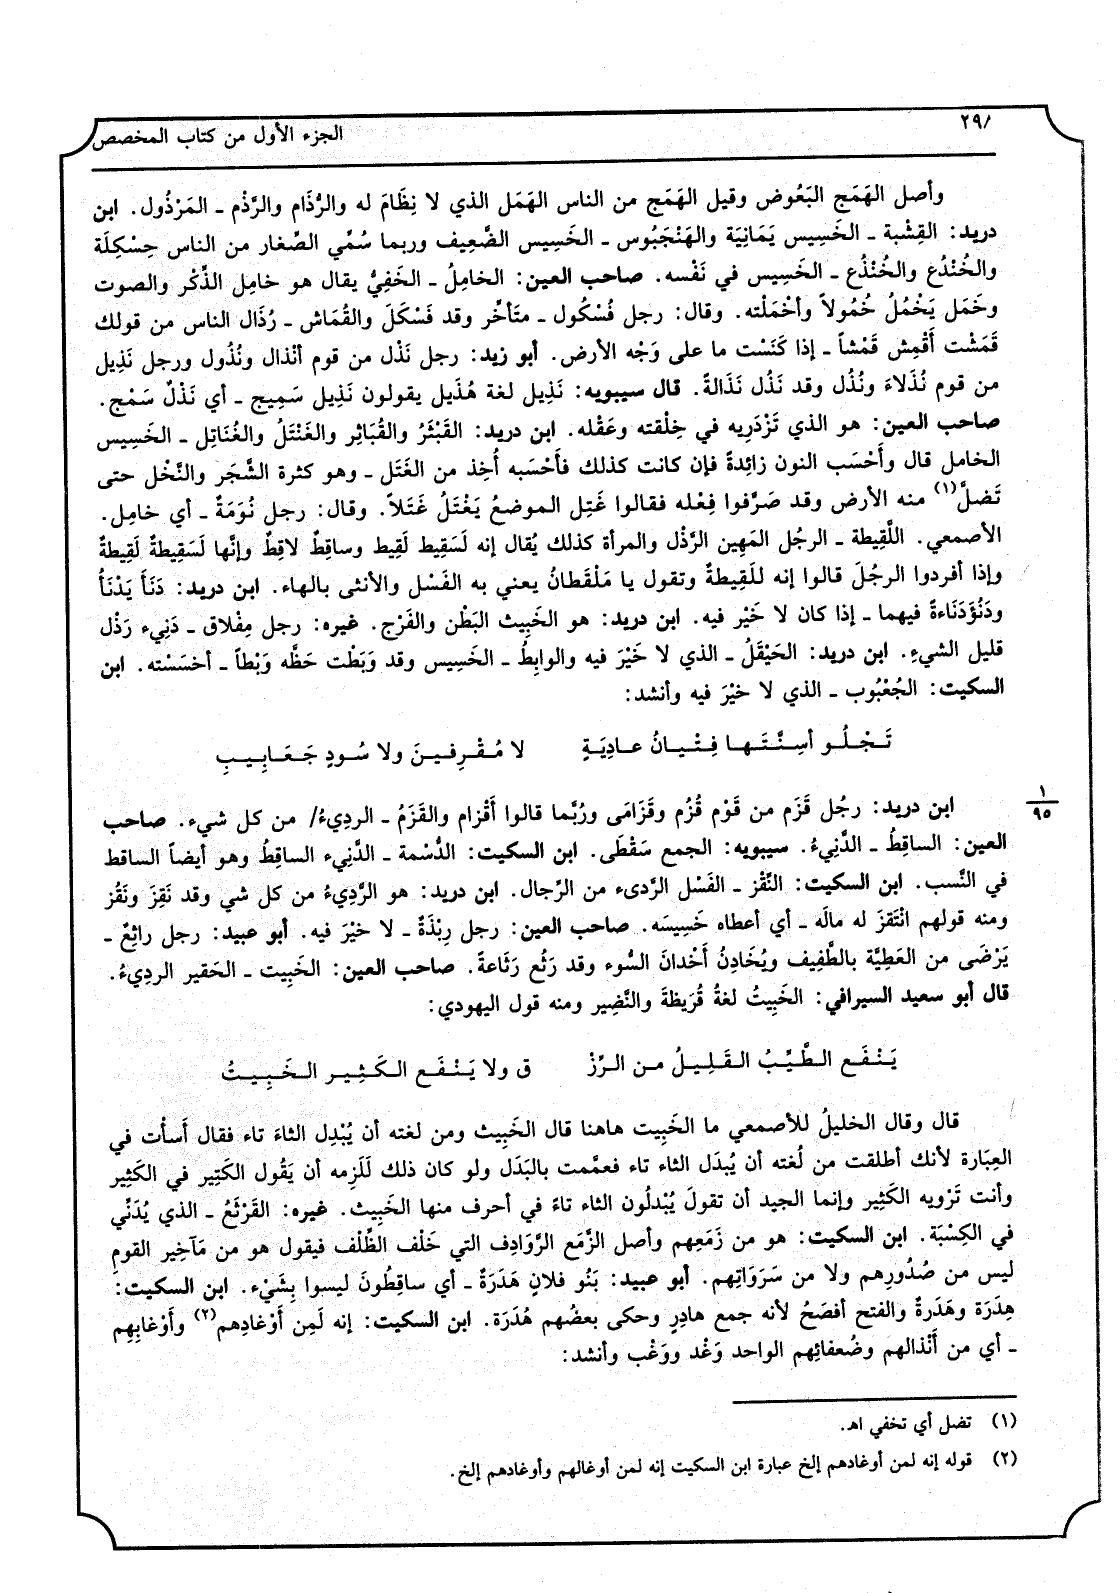 ٢٩٨
الجزء الأول من كتاب المخصص
وأصل الهَمَج البَعُوض وقيل الهَمَج من الناس الهَمَل الذي لا نِظَامَ له والرُّذَام والرَّذْم ـ المَرْذُول. ابن
دريد: القِشْبة ـ الخَسِيس يَمَانِيَة والهَنْجَبُوس ـ الخَسِيس الضَّعِيف وربما سُمِّي الصِّغار من الناس حِسْكِلَة
والخُنْدُع والخُنْذُع ـ الخَسِيس في نَفْسه. صاحب العين: الخامِلُ ـ الخَفِيُّ يقال هو خامِل الذِّكْر والصوت
وخَمَل يَخْمُلُ خُمُولاً وأخْمَلْته. وقال: رجل فُسْكُول ـ متَأخِّر وقد فَسْكَلَ والقُمَاش ـ رُذَال الناس من قولك
قَمَشْت أَقْمِش قَمْشاً ـ إذا كَنَسْت ما على وَجْه الأرض. أبو زيد: رجل نَذْل من قوم أنْذال ونُذُول ورجل نَذِيل
من قوم نُذَلاءَ ونُذُل وقد نَذُل نَذَالةً. قال سيبويه: نَذِيل لغة هُذَيل يقولون نَذِيل سَمِيج ـ أي نَذْلٌ سَمْج.
صاحب العين: هو الذي تَزْدَرِيه في خِلْقته وعَقْله. ابن دريد: القَبْثَرُ والقُبَاثِر والغَنْتَلُ والغُنَاتِل ـ الخَسِيس
الخامل قال وأَحْسَب النون زائِدةً فإن كانت كذلك فأَحْسَبه أُخِذ من الغَتَل ـ وهو كثرة الشَّجَر والنَّخْل حتى
تَضلَّ(١) منه الأرض وقد صَرَّفوا فِعْله فقالوا غَتِل الموضعُ يَغْتَلُ غَتَلاً. وقال: رجل نُوَمَةٌ ـ أي خامِل.
الأصمعي. اللَّقِيطة ـ الرجُل المَهِين الرَّذْل والمرأة كذلك يُقال إنه لَسَقِيط لَقِيط وساقِطٌ لاقِطٌ وإنَّها لَسَقِيطةٌ لَقِيطةٌ
وإذا أفردوا الرجُلَ قالوا إنه للَقِيطةٌ وتقول يا مَلْقَطانُ يعني به الفَسْل والأنثى بالهاء. ابن دريد: دَنَأَ يَدْنَأُ
ودَنُؤَدَنَاءةً فيهما ـ إذا كان لا خَيْر فيه. ابن دريد: هو الخَبِيث البَطْن والفَرْج. غيره: رجل مِفْلاق ـ دَنِيء رَذْل
قليل الشيءِ. ابن دريد: الحَيْقَلُ ـ الذي لا خَيْرَ فيه والوابِطُ ـ الخَسِيس وقد وَبَطْت حَظَّه وَبْطاً ـ أخسَسْته. ابن
السكيت: الجُعْبُوب ـ الذي لا خيْرَ فيه وأنشد:
تَـجْـلُـو أسِـنَّـتَـهـا فِـتْـيـانُ عـاديَـةٍ لا مُـقْـرِفـيـنَ ولا سُـودٍ جَـعَـابِـيـبِ
ابن دريد: رجُل قَزَم من قَوْم قُزُم وقَزَامَى ورُبَّما قالوا أَقْزام والقَزَمُ ـ الردِيءُ/ من كل شيء. صاحب
١
٩٥
العين: الساقِطُ ـ الدَّنِيءُ. سيبويه: الجمع سَقْطَى. ابن السكيت: الدُّسْمة ـ الدَّنِيء الساقِطُ وهو أيضاً الساقط
في النَّسب. ابن السكيت: النَّقْز ـ الفَسْل الرَّدىء من الرِّجال. ابن دريد: هو الرَّدِيءُ من كل شي وقد نَقِزَ ونَقُز
ومنه قولهم انْتَقزَ له مالَه ـ أي أعطاه خَسِيسَه. صاحب العين: رجل رِبْذَةٌ ـ لا خيْرَ فيه. أبو عبيد: رجل راثِعٌ ـ
يَرْضَى من العَطِيَّة بالطَّفِيف ويُخَادِنُ أَخْدانَ السُّوء وقد رَثُع رَثَاعةً. صاحب العين: الخَبِيت ـ الحَقير الردِيءُ.
قال أبو سعيد السيرافي: الخَبِيتُ لغةُ قُرَيظةَ والنَّضِير ومنه قول اليهودي:
يَـنْـفَـع الـطَّـيِّـبُ الـقَـلِـيـلُ مـن الـرِّزْ ق ولا يَـنْـفَـع الـكَـثِـيـر الـخَـبِـيـتُ
قال وقال الخليلُ للأصمعي ما الخَبِيت هاهنا قال الخَبِيث ومن لغته أن يُبْدِل الثاءَ تاء فقال أَسأْت في
العِبَارة لأنك أطلقت من لُغته أن يُبدَل الثاء تاء فعمَّمت بالبَدَل ولو كان ذلك لَلَزِمه أن يَقُول الكَتِير في الكَثِير
وأنت تَرْويه الكَثِير وإنما الجيد أن تقولَ يُبْدلُون الثاء تاءً في أحرف منها الخَبِيث. غيره: القَرْثَعُ ـ الذي يُدَنِّي
في الكِسْبَة. ابن السكيت: هو من زَمَعِهم وأصل الزَّمَع الرَّوَادِف التي خَلْف الظِّلْف فيقول هو من مَآخِير القومِ
ليس من صُدُورِهم ولا من سَرَوَاتِهم. أبو عبيد: بَنُو فلانٍ هَدَرَةٌ ـ أي ساقِطُونَ ليسوا بِشَيْء. ابن السكيت:
هِدَرَة وهَدَرةٌ والفتح أفصَحُ لأنه جمع هادِرٍ وحكى بعضُهم هُدَرَة. ابن السكيت: إنه لَمِن أَوْغادِهم(٢) وأَوْغابِهم
ـ أي من أَنْذالهم وضُعفائِهم الواحد وَغْد ووَغْب وأنشد:
(١) تضل أي تخفي اهـ.
(٢) قوله إنه لمن أوغادهم إلخ عبارة ابن السكيت إنه لمن أوغالهم وأوغادهم إلخ.